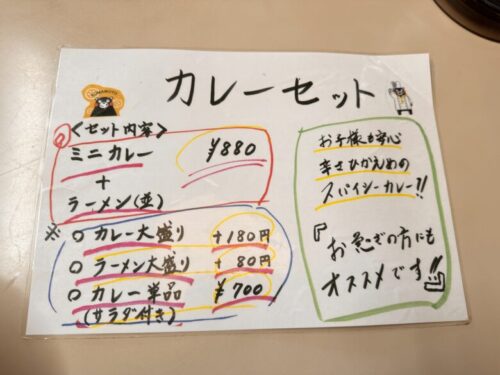 KUMAMOTO
カレーセット
<セット内容>
ミニカレー ¥880
+
ラーメン(並)
※
○ カレー大盛り +180円
○ ラーメン大盛り +80円
○ カレー単品 ¥700
(サラダ付き)
お子様も安心
辛さひかえめの
スパイシーカレー!!
『お急ぎの方にも
オススメです!!』